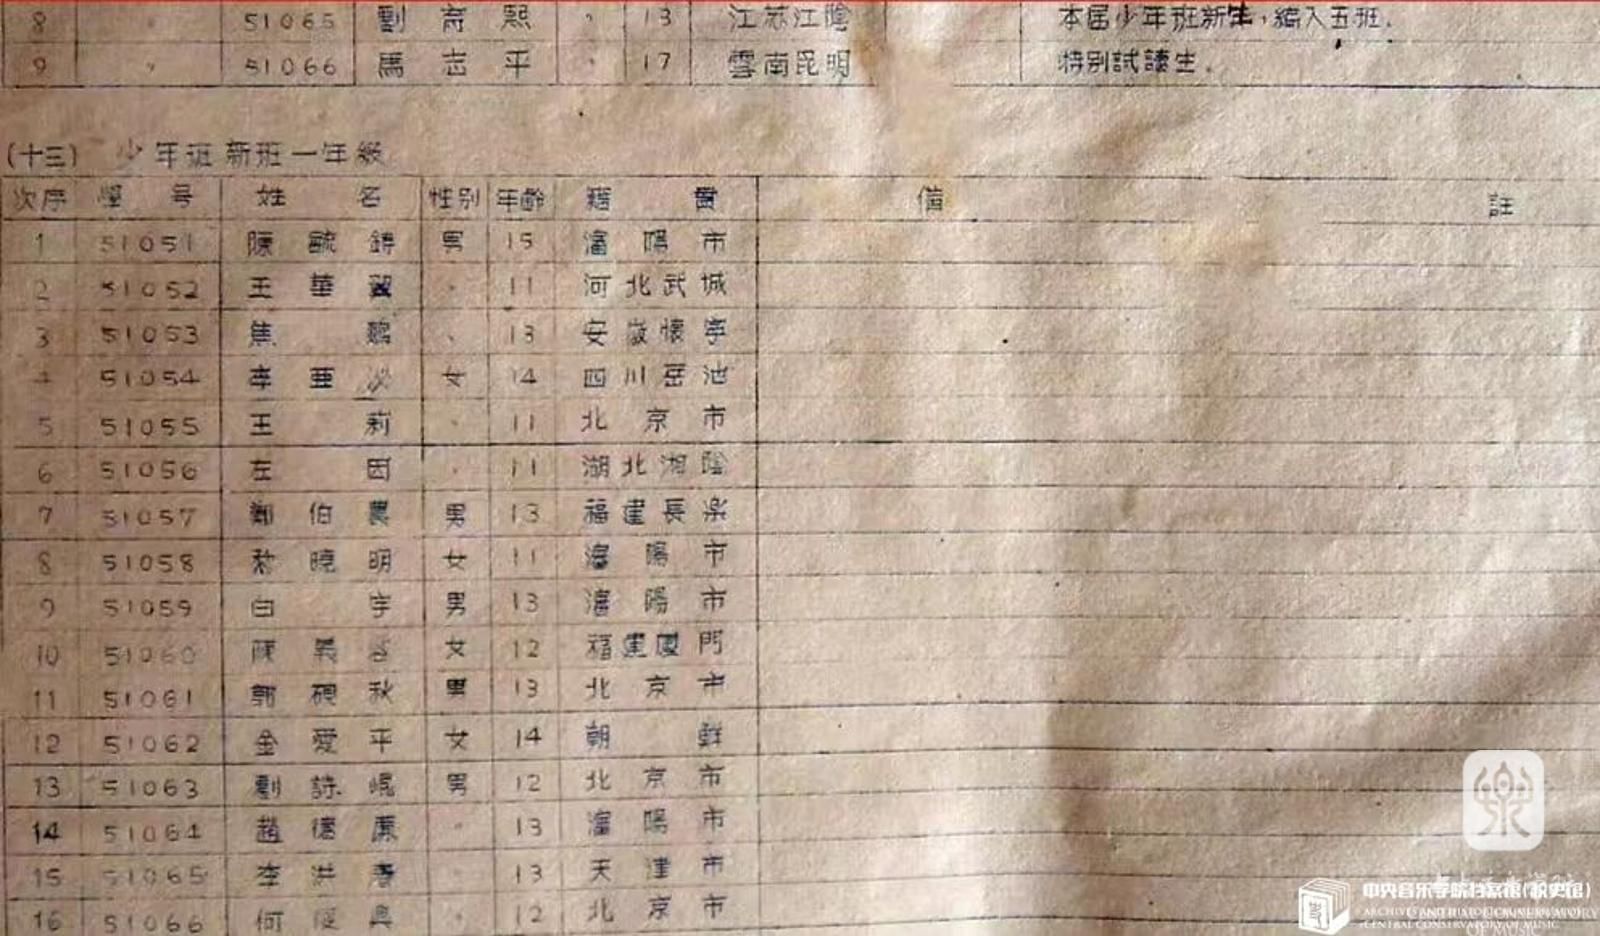 8 〃 51065 劉育熙 〃 13 江苏江陰 本届少年班新生，編入五班.
9 〃 51066 馬志平 〃 17 雲南昆明 特别試讀生.
(十三) 少年班新班一年級
次序 學号 姓名 性别 年齡 籍貫 備註
1 51051 陳毓鑄 男 15 瀋陽市
2 51052 王華翼 〃 11 河北武城
3 51053 焦鵾 〃 13 安徽懷寧
4 51054 李亜 女 14 四川岳池
5 51055 王莉 〃 11 北京市
6 51056 左因 〃 11 湖北湘陰
7 51057 鄭伯農 男 13 福建長楽
8 51058 曉明 女 11 瀋陽市
9 51059 白宇 男 13 瀋陽市
10 51060 陳義 女 12 福建厦門
11 51061 郭硯秋 男 13 北京市
12 51062 金愛平 女 14 朝鮮
13 51063 劉詩崐 男 12 北京市
14 51064 趙德廉 〃 13 瀋陽市
15 51065 李洪 〃 13 天津市
16 51066 何復興 〃 12 北京市
中央音乐学院档案馆(校史馆)
CENTRAL CONSERVATORY OF MUSIC